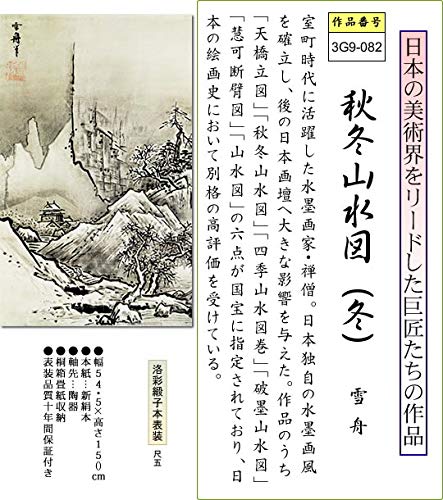 日本の美術界をリードした巨匠たちの作品
作品番号
3G9-082
秋冬山水図（冬）
雪舟
室町時代に活躍した水墨画家・禅僧。日本独自の水墨画風
を確立し、後の日本画壇へ大きな影響を与えた。作品のうち
「天橋立図」「秋冬山水図」「四季山水図巻」「破墨山水図」
「慧可断臂図」「山水図」の六点が国宝に指定されており、日
本の絵画史において別格の高評価を受けている。
雪舟筆
洛彩緞子本表装
尺五
●幅54.5×高さ150cm
●本紙…新絹本
●軸先…陶器
●桐箱畳紙収納
●表装品質十年間保証付き